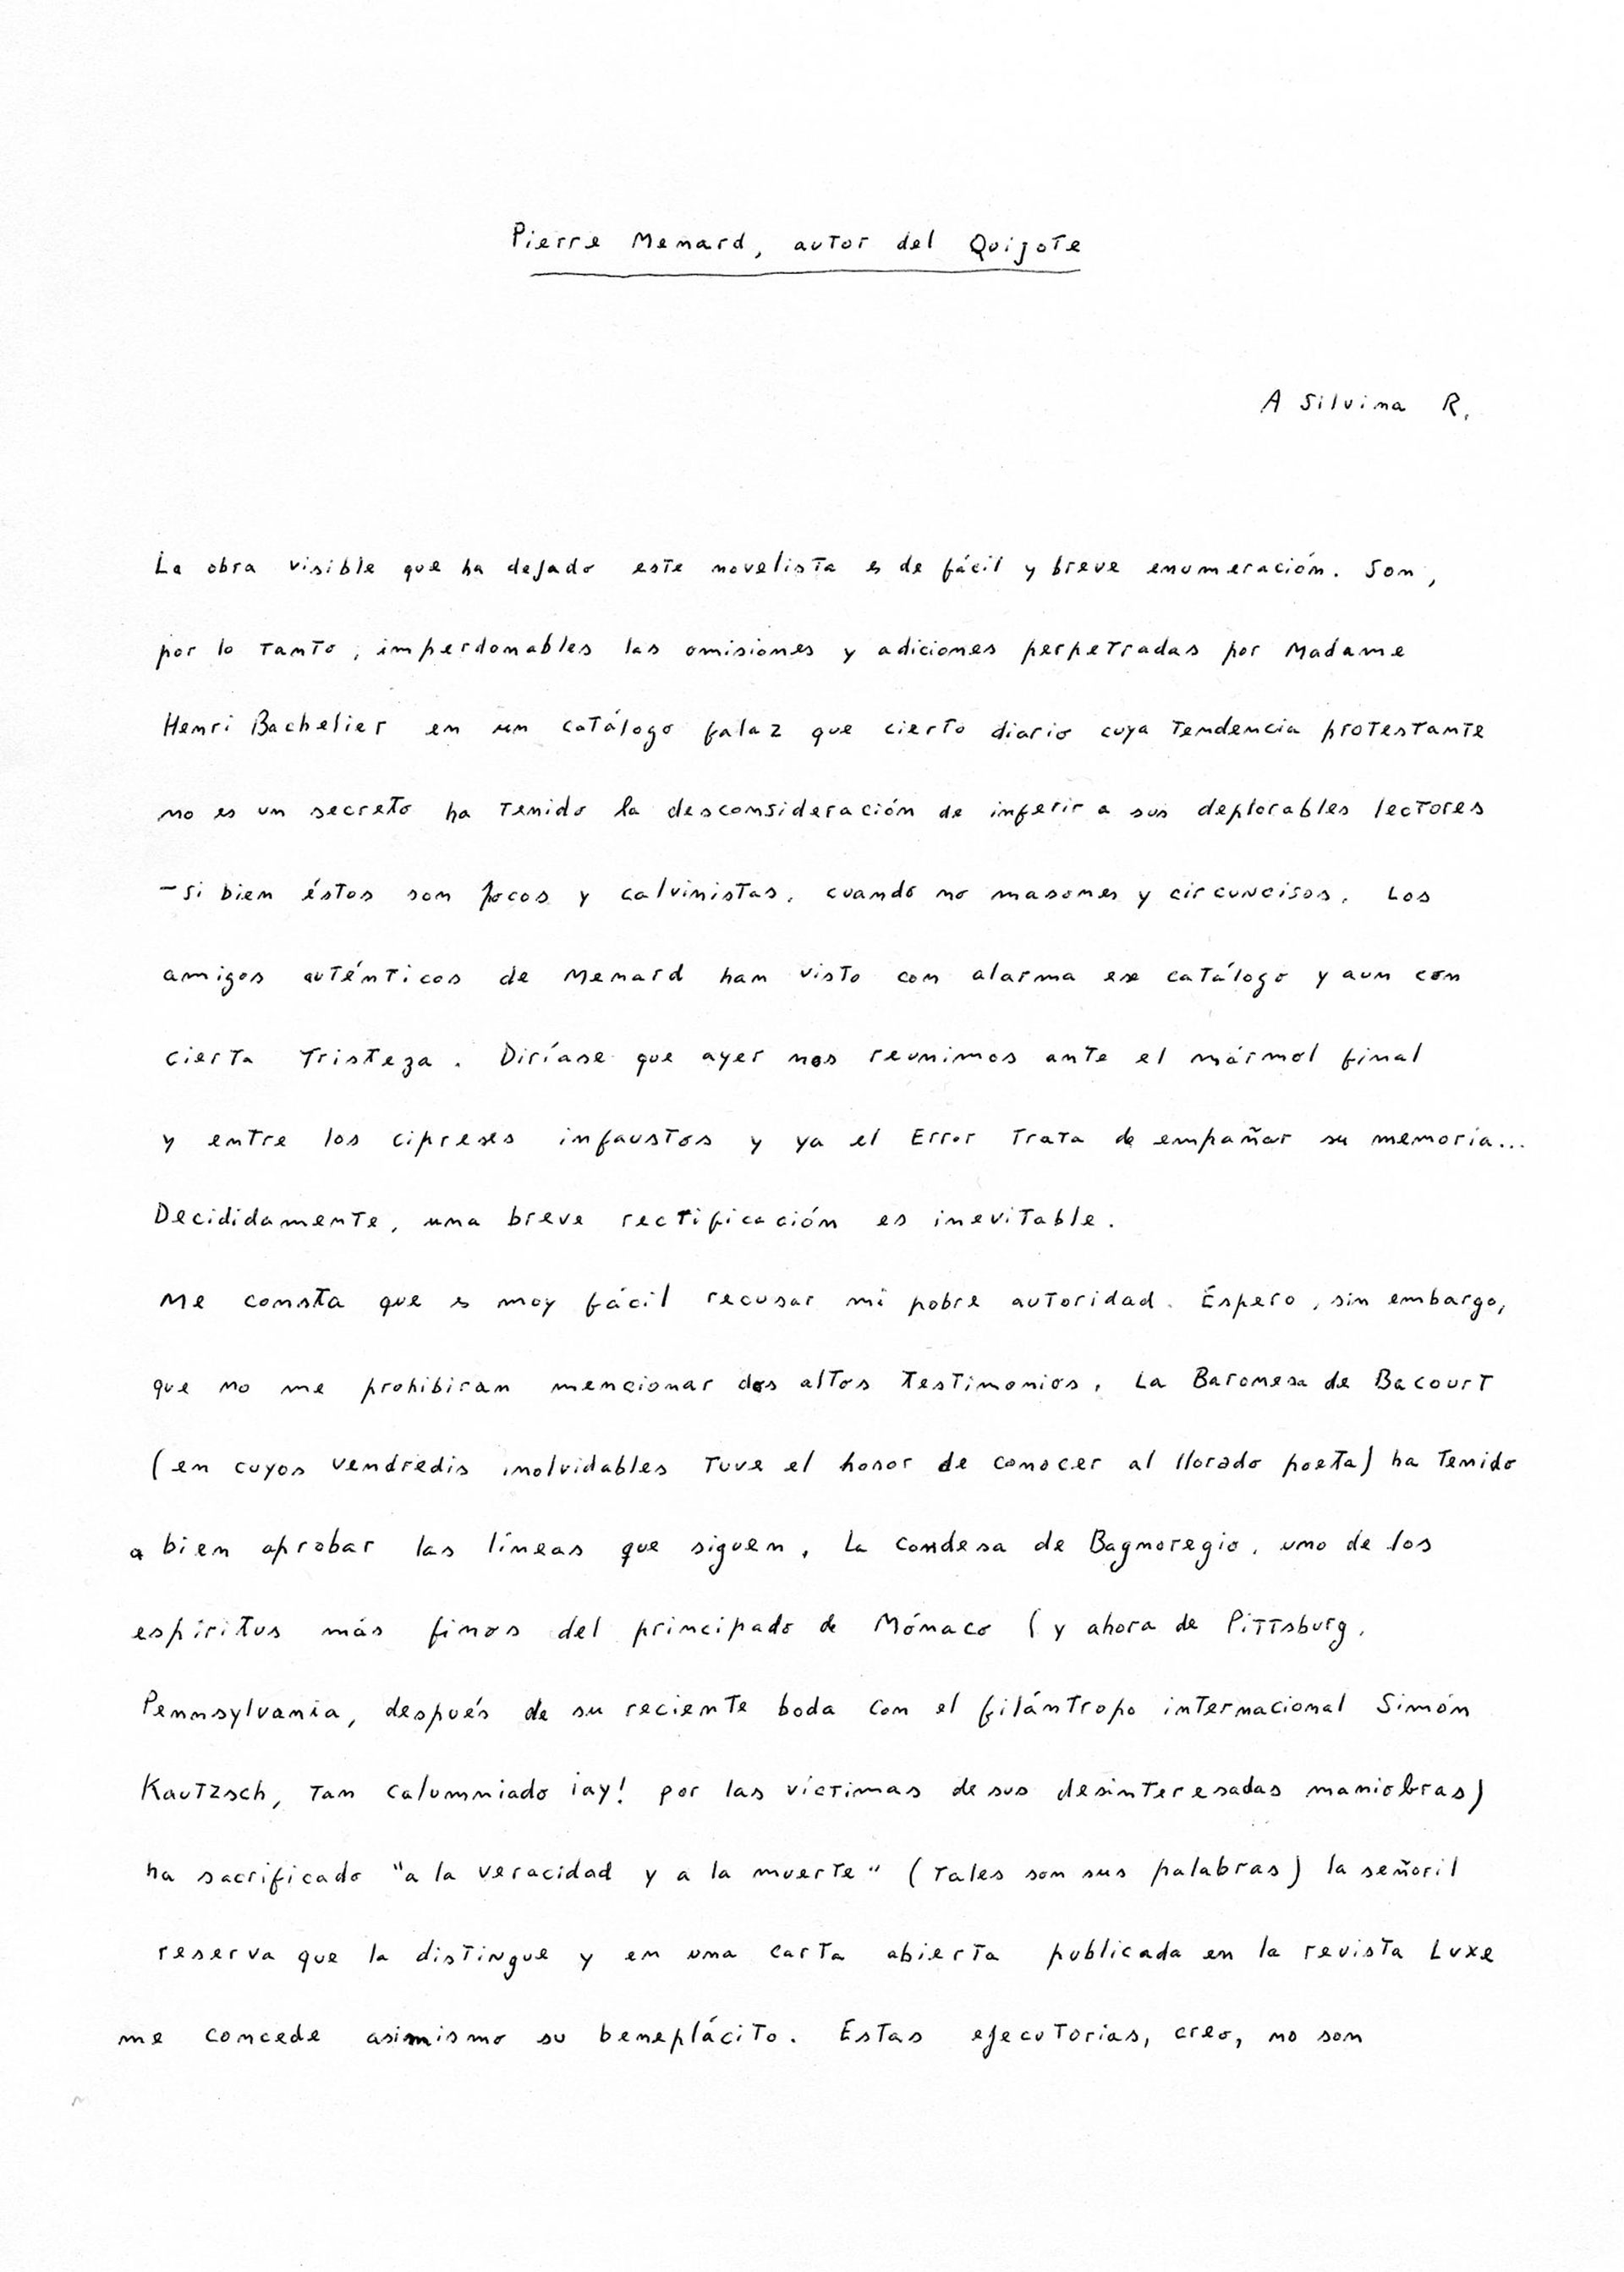 Pierre Menard, autor del Quijote
A Silvina R.
La obra visible que ha dejado este novelista es de fácil y breve enumeración. Son,
por lo tanto, imperdonables las omisiones y adiciones perpetradas por Madame
Henri Bachelier en un catálogo falaz que cierto diario cuya tendencia protestante
no es un secreto ha tenido la desconsideración de inferir a sus deplorables lectores
–si bien éstos son pocos y calvinistas, cuando no masones y circuncisos. Los
amigos auténticos de Menard han visto con alarma ese catálogo y aun con
cierta tristeza. Diríase que ayer nos reunimos ante el mármol final
y entre los cipreses infaustos y ya el Error trata de empañar su memoria...
Decididamente, una breve rectificación es inevitable.
Me consta que es muy fácil recusar mi pobre autoridad. Espero, sin embargo,
que no me prohibiran mencionar dos altos testimonios. La Baronesa de Bacourt
(en cuyos vendredis inolvidables tuve el honor de conocer al llorado poeta) ha tenido
a bien aprobar las líneas que siguen. La condesa de Bagnoregio, uno de los
espíritus más finos del principado de Mónaco (y ahora de Pittsburg,
Pennsylvania, después de su reciente boda con el filántropo internacional Simón
Kautzsch, tan calumniado ¡ay! por las víctimas de sus desinteresadas maniobras)
ha sacrificado "a la veracidad y a la muerte" (tales son sus palabras) la señoril
reserva que la distingue y en una carta abierta publicada en la revista Luxe
me concede asimismo su beneplácito. Estas ejecutorias, creo, no son